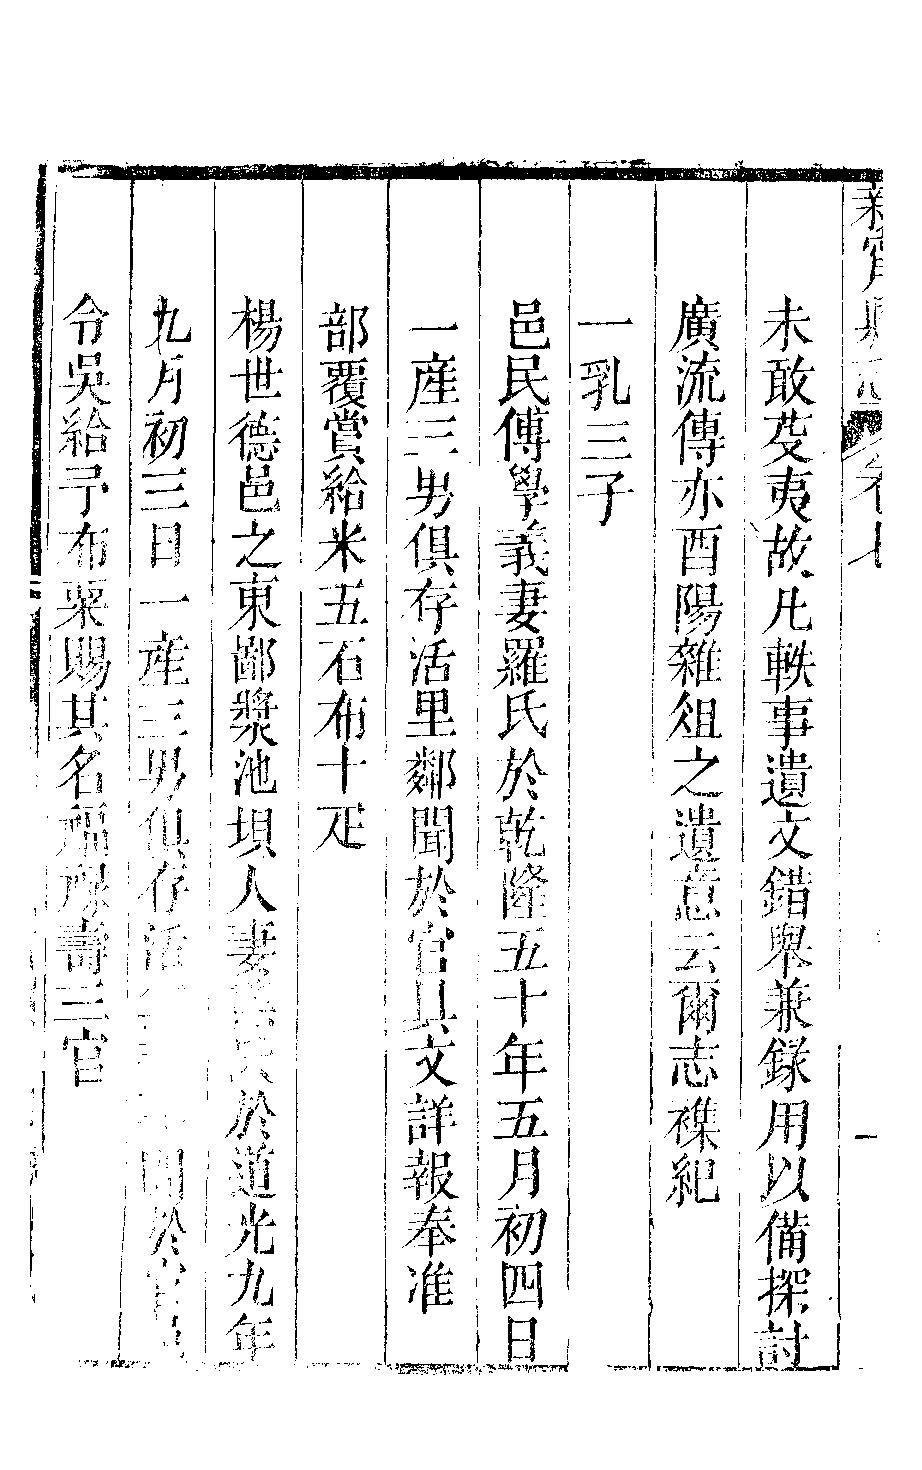 未敢芟夷故凡軼事遺文錯舉兼錄用以備探討
廣流傳亦酉陽雜俎之遺意云爾志襍紀
一乳三子
邑民傅學義妻羅氏於乾隆五十年五月初四日
一產三男俱存活里鄰聞於官具文詳報奉准
部覆賞給米五石布十疋
楊世德邑之東鄙漿池壩人妻氏於道光九年
九月初三日一產三男俱存活聞於官邑
令吳給予布粟賜其名福祿壽三官